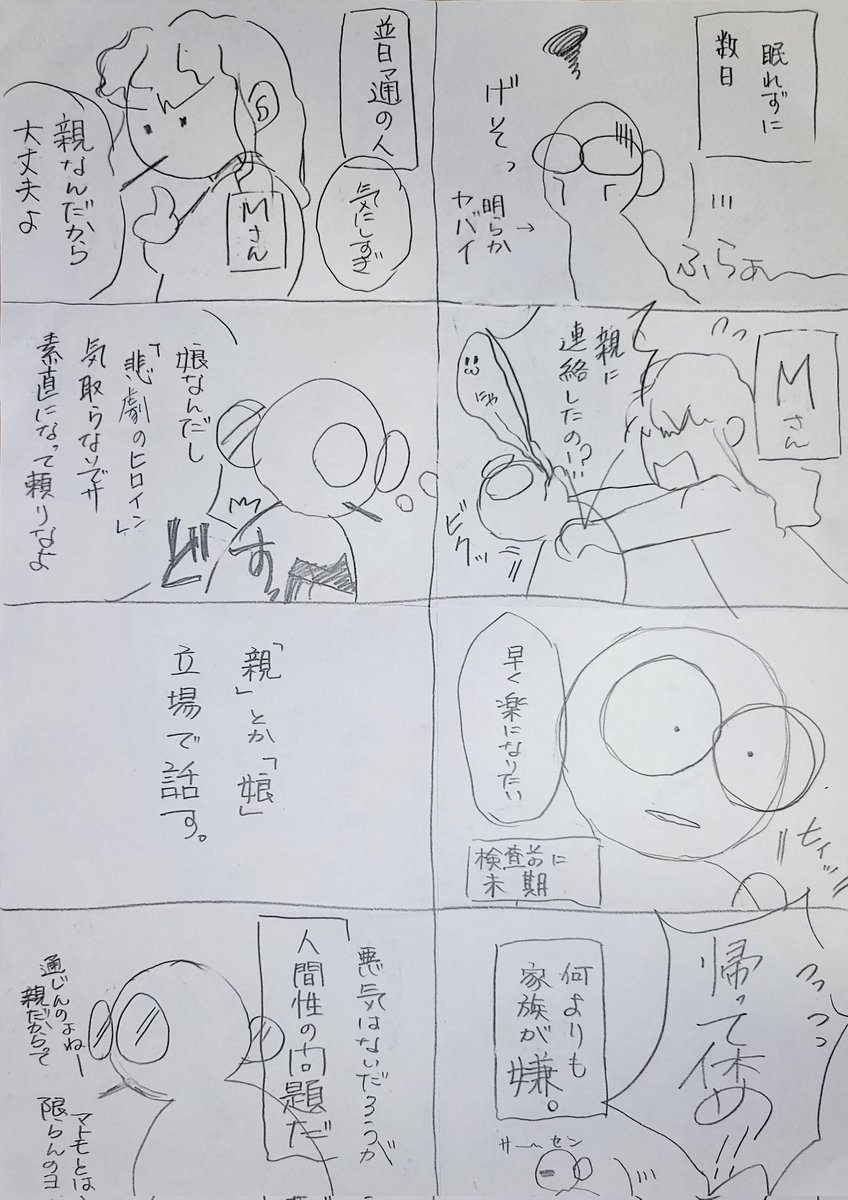 眠れずに
数日
ふらぁ〜
げそっ
明らか
ヤバイ
→
Mさん
親に
連絡したの!?
にゃ
ビクッ
早く楽になりたい
検査前に
末期
ヒィッ
帰って休め!!
何よりも
家族が
嫌。
サーセン
普通の人
気にしすぎ
Mさん
親なんだから
大丈夫よ
娘なんだし
「悲劇のヒロイン」
気取らないでサ
素直になって頼りなよ
ビす
「親」とか「娘」
立場で話す。
悪気はないだろうが
人間性の問題だ
通じんのよねー
親だからって
マトモとは
限らんのヨ